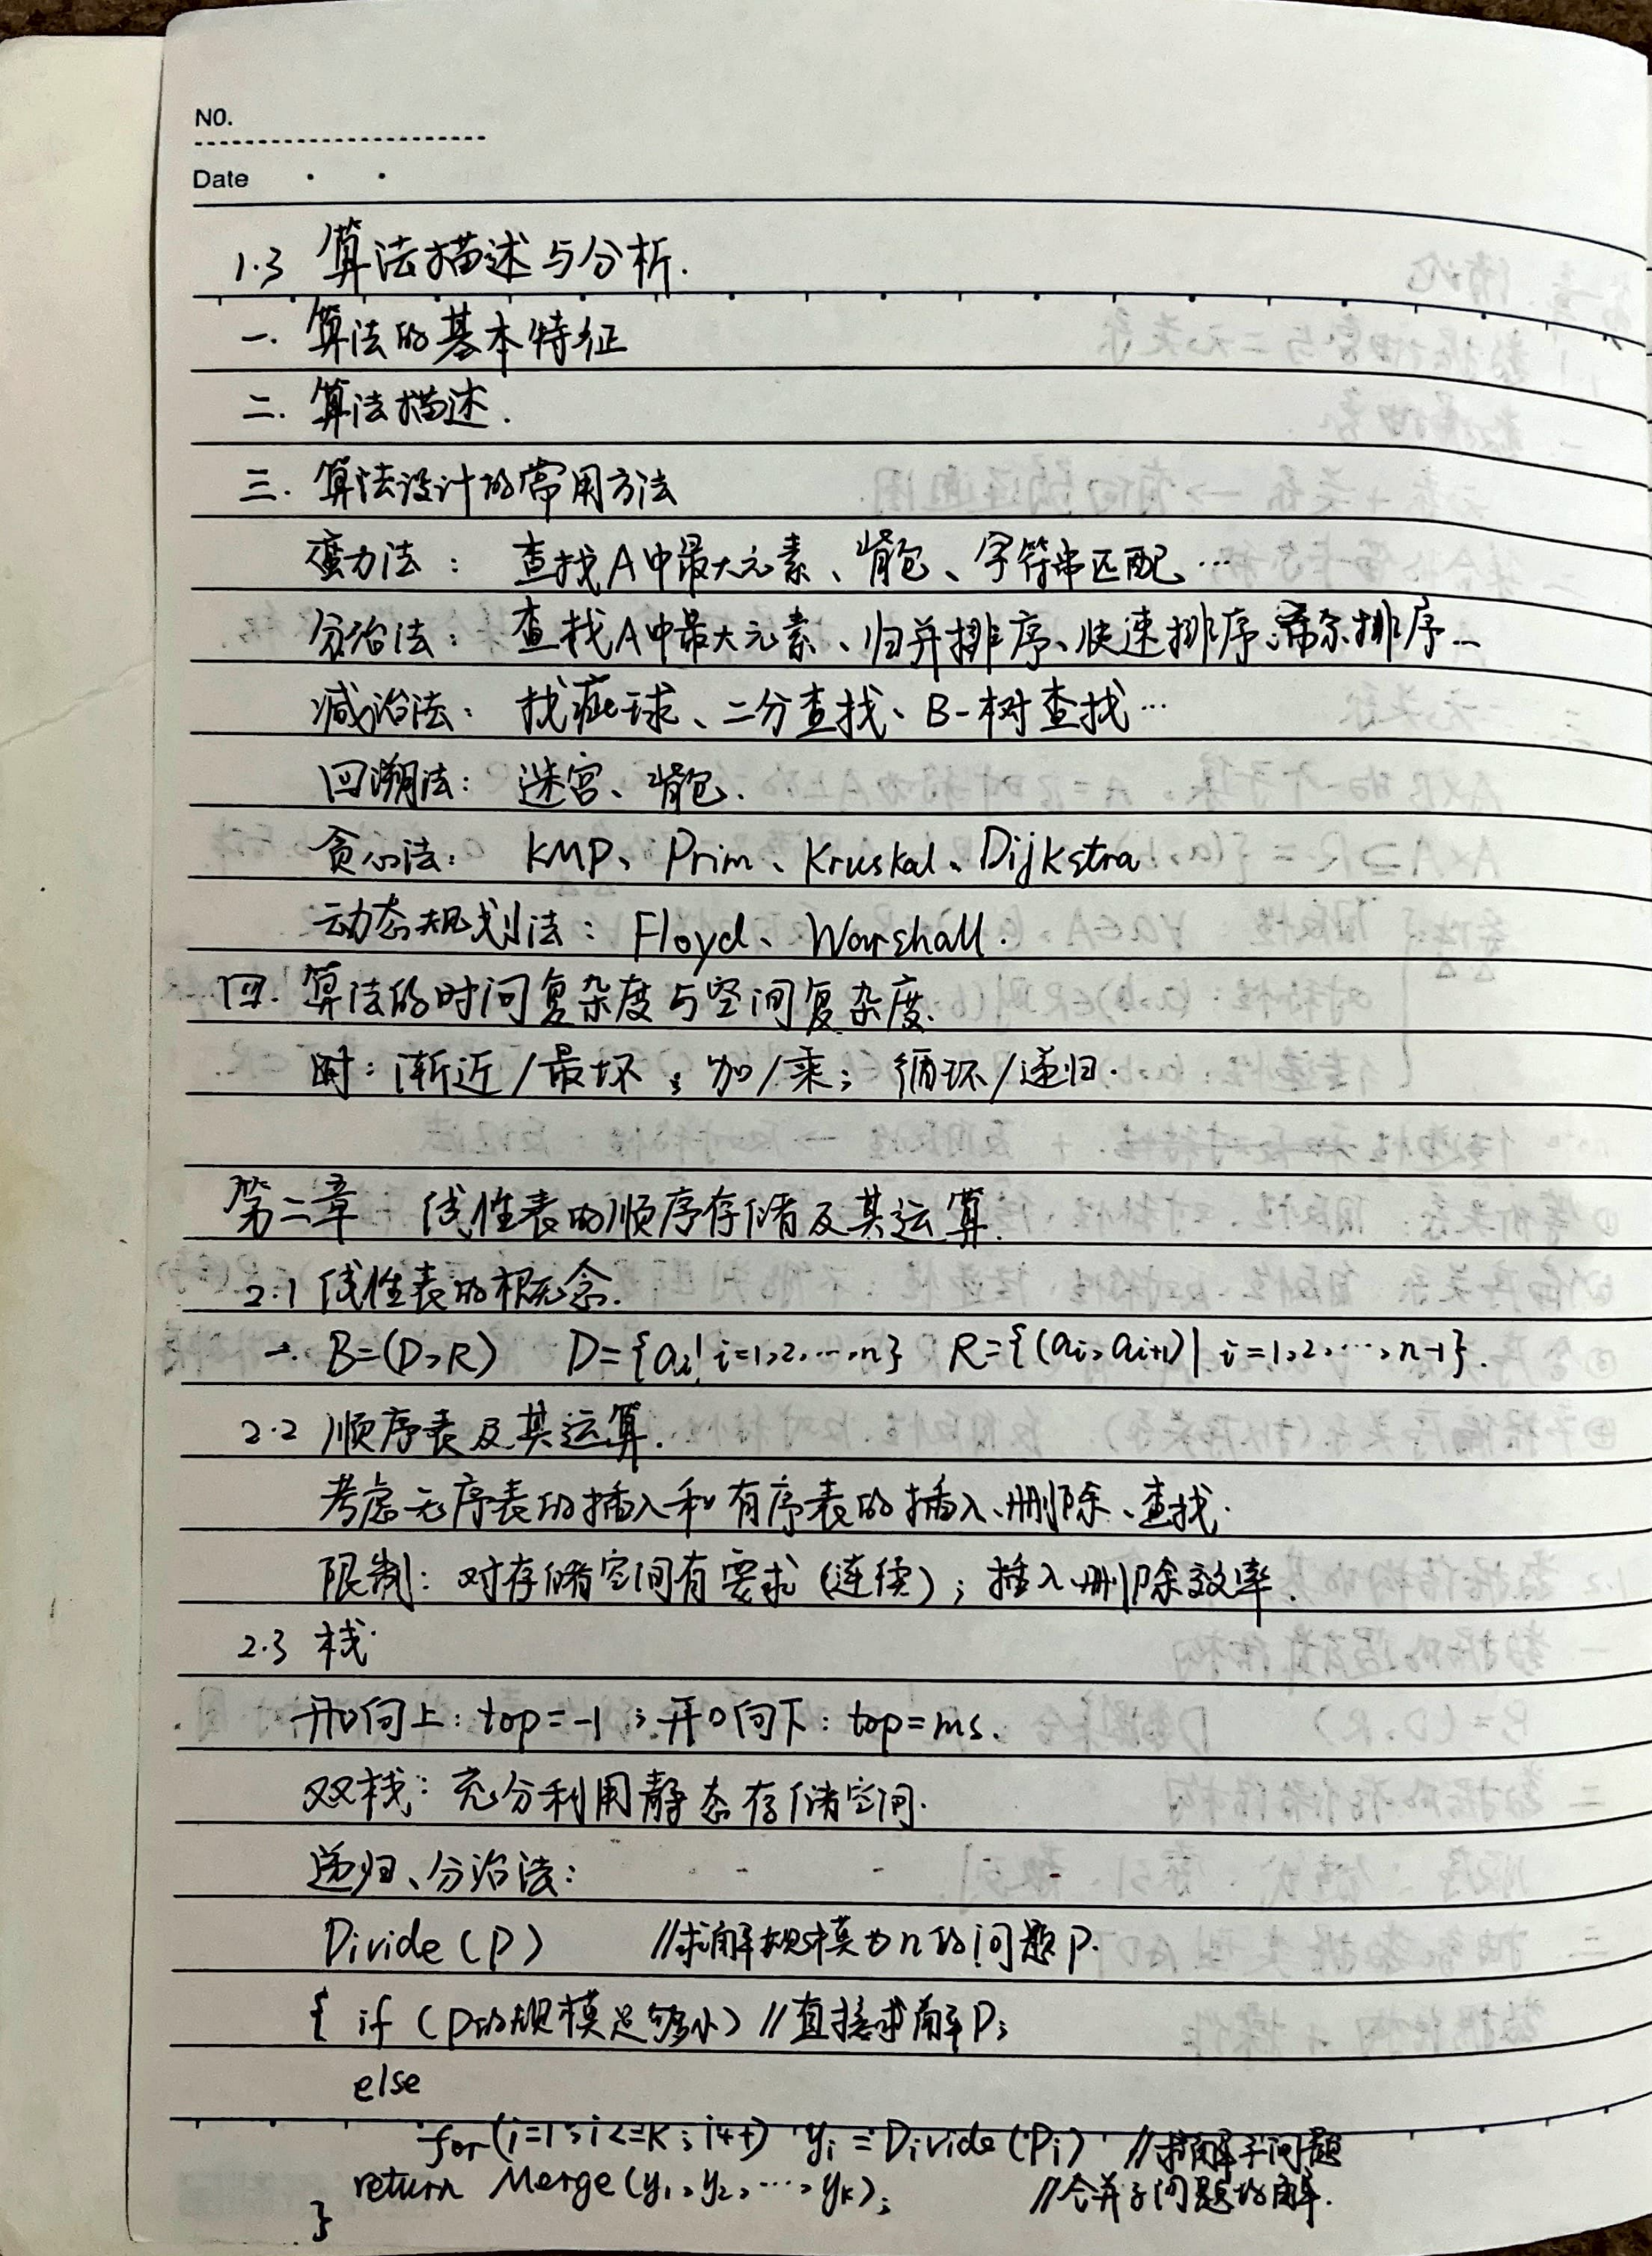 NO.
Date
1.3 算法描述与分析.
一. 算法的基本特征
二. 算法描述.
三. 算法设计的常用方法
蛮力法: 查找A中最大元素、背包、字符串匹配…
分治法: 查找A中最大元素、归并排序、快速排序、希尔排序…
减治法: 找疵球、二分查找、B-树查找…
回溯法: 迷宫、背包.
贪心法: KMP、Prim、Kruskal、Dijkstra
动态规划法: Floyd、Warshall.
四. 算法的时间复杂度与空间复杂度.
时: 渐近/最坏; 加/乘; 循环/递归.
第二章 线性表的顺序存储及其运算.
2.1 线性表的概念.
一. B=(D,R) D={ai|i=1,2,…,n} R={(ai,ai+1)|i=1,2,…,n-1}.
2.2 顺序表及其运算.
考虑无序表的插入和有序表的插入、删除、查找.
限制: 对存储空间有要求(连续); 插入、删除效率.
2.3 栈.
开口向上: top=-1; 开口向下: top=ms.
双栈: 充分利用静态存储空间.
递归、分治法:
Divide(P) //求解规模为n的问题P.
{ if (P的规模足够小) //直接求解P;
else
for(i=1;i<=K;i++) yi=Divide(Pi) //求解子问题
return Merge(y1,y2,…,yk); //合并子问题的解.
}